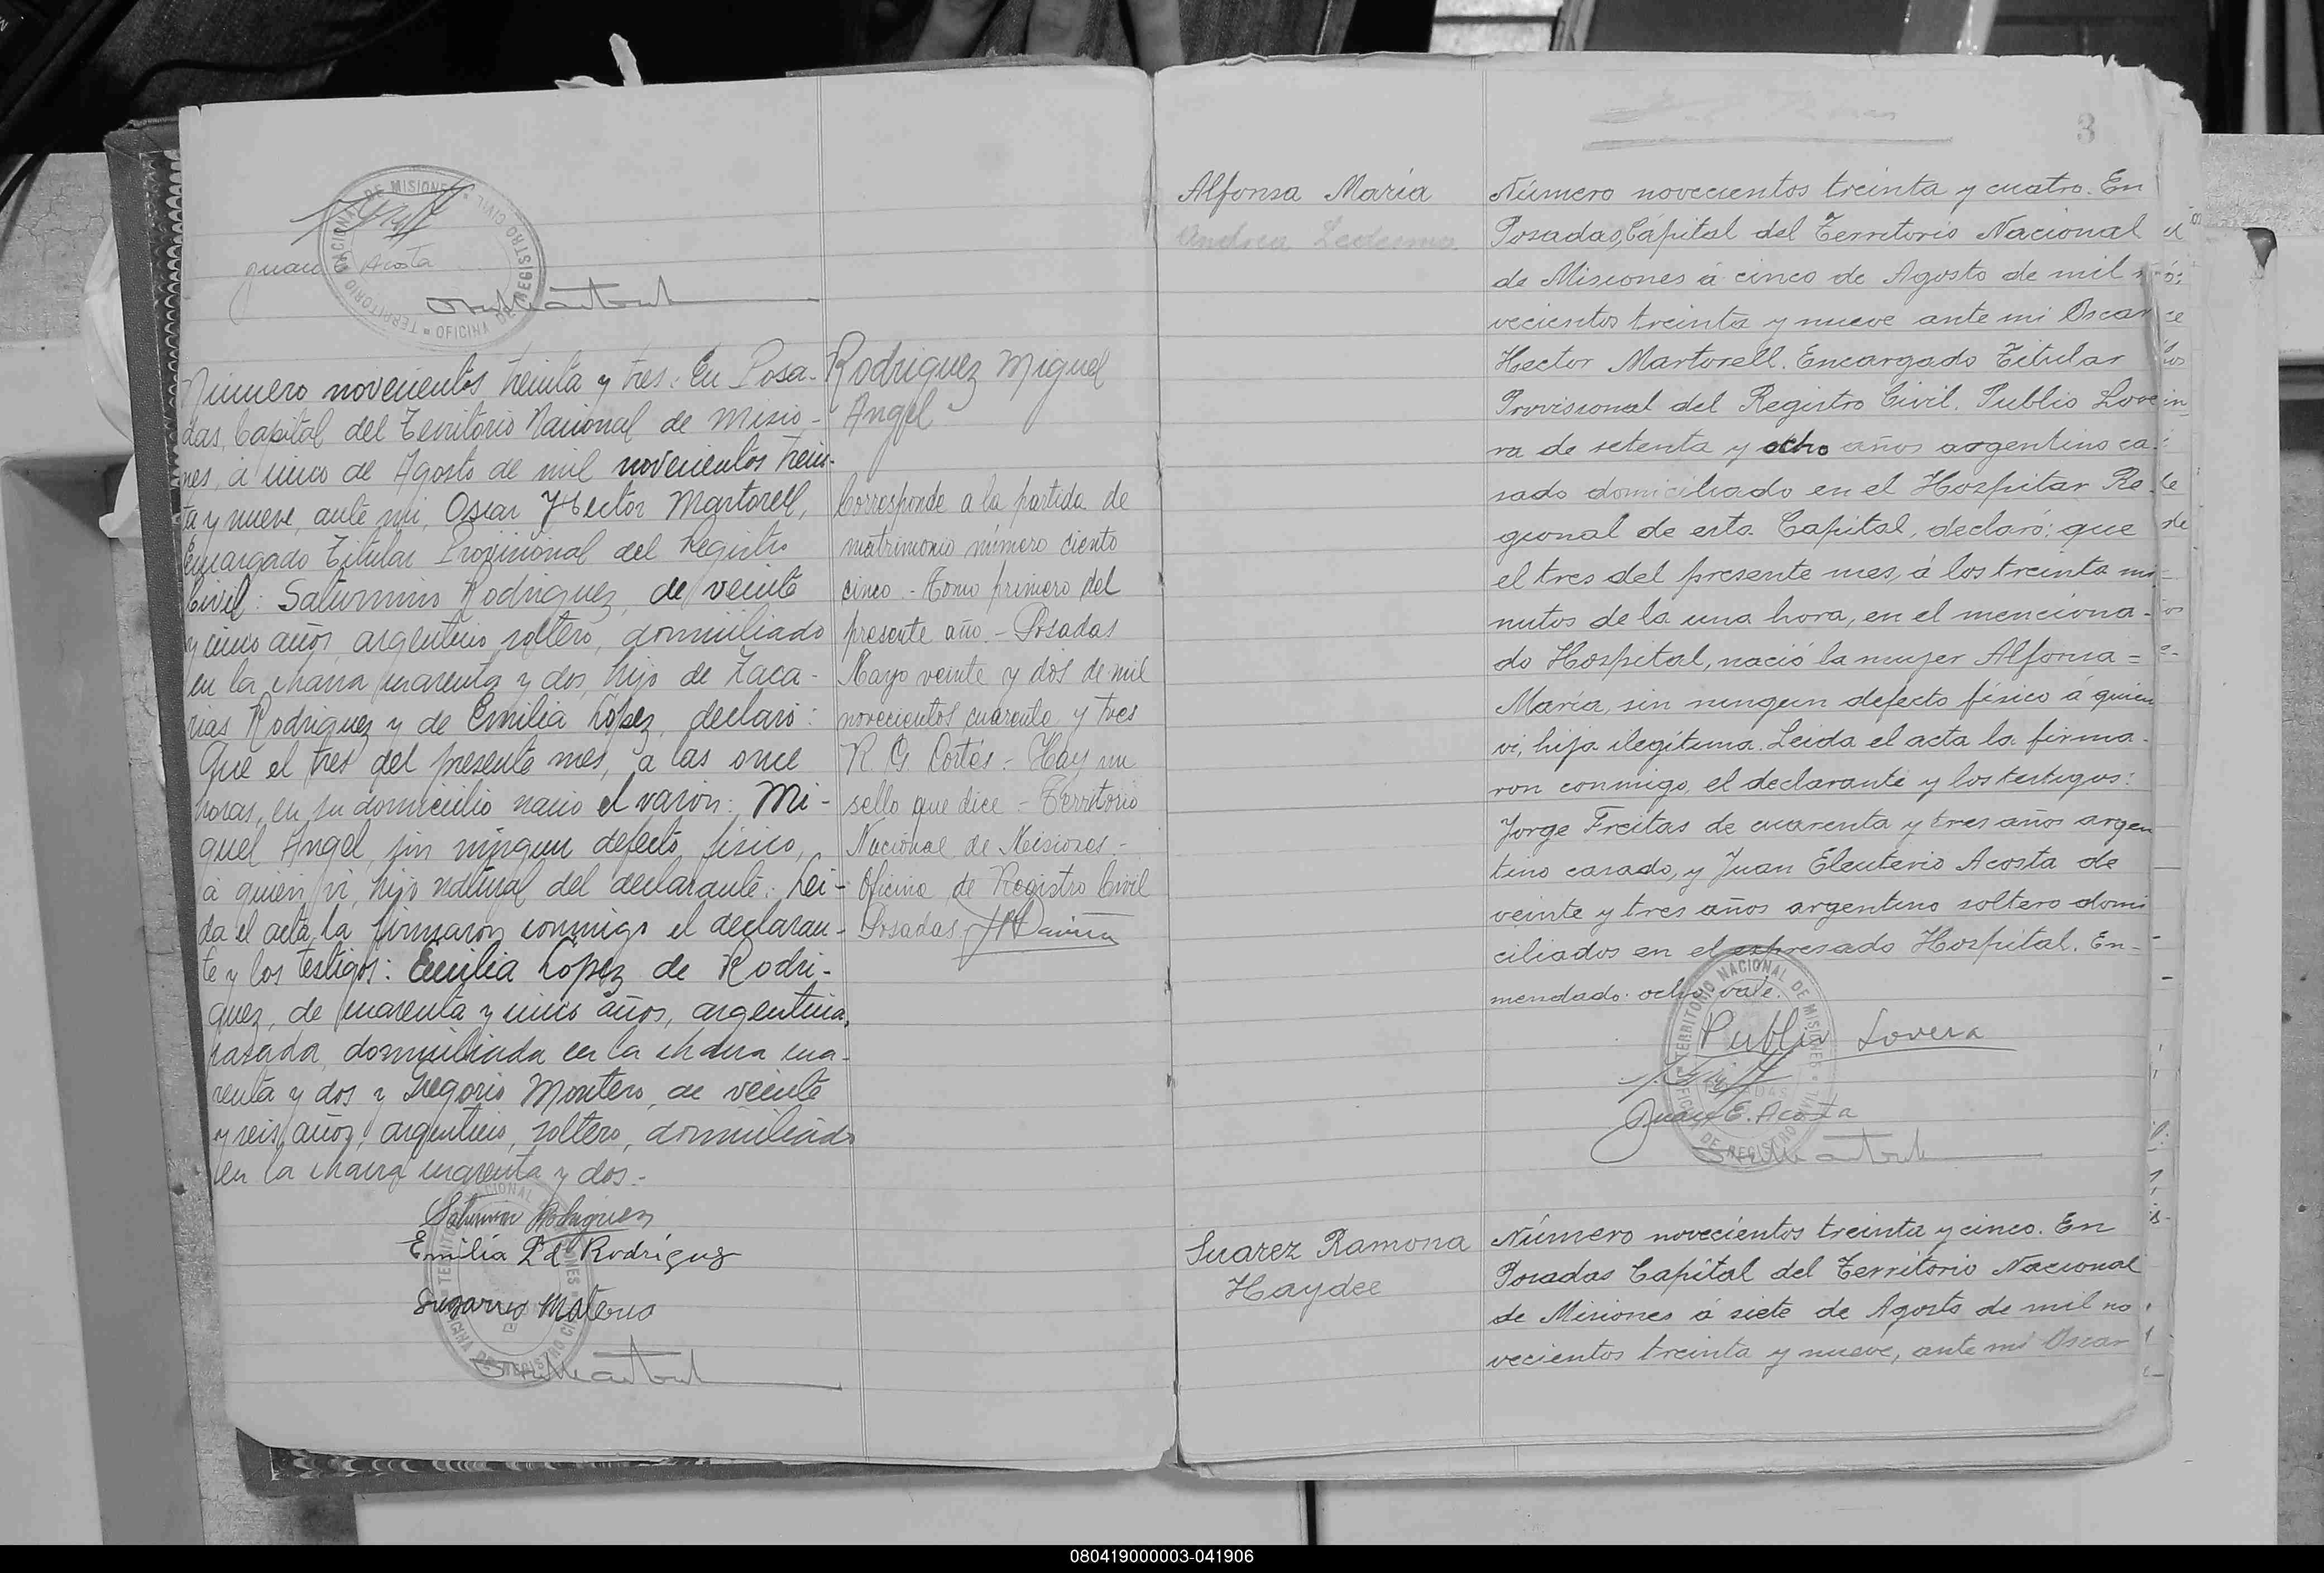 TERRITORIO NACIONAL DE MISIONES
OFICINA DE REGISTRO CIVIL
Juan Acosta
Número novecientos treinta y tres. En Posa-
das, Capital del Territorio Nacional de Misio-
nes, á cinco de Agosto de mil novecientos trein-
ta y nueve, ante mi, Oscar Hector Martorell,
Encargado Titular Provisional del Registro
Civil: Saturnino Rodriguez, de veinte
y cinco años, argentino, soltero, domiciliado
en la chacra cuarenta y dos, hijo de Zaca-
rias Rodriguez y de Emilia López, declaró:
Que el tres del presente mes, a las once
horas, en su domicilio nació el varón: Mi-
guel Angel, sin ningun defecto físico,
á quien vi, hijo natural del declarante. Lei-
da el acta, la firmaron conmigo el declaran-
te y los testigos: Emilia López de Rodri-
guez, de cuarenta y cinco años, argentina,
casada, domiciliada en la chacra cua-
renta y dos y Gregorio Montero, de veinte
y seis años, argentino, soltero, domiciliado
en la chacra cuarenta y dos.-
Saturnino Rodriguez
Emilia L d Rodriguz
Rodriguez Miguel
Angel
Corresponde a la partida de
matrimonio número ciento
cinco.- Tomo primero del
presente año.- Posadas
Mayo veinte y dós de mil
novecientos cuarenta y tres
R. G. Cortés.- Hay un
sello que dice - Territorio
Nacional de Misiones.-
Oficina de Registro Civil
Posadas.
3
Alfonsa María
Andrea Ledesma
Número novecientos treinta y cuatro. En
Posadas, Cápital del Territorio Nacional
de Misiones á cinco de Agosto de mil no
vecientos treinta y nueve ante mi Oscar
Hector Martorell. Encargado Titular
Provisional del Registro Civil. Publio Love
ra de setenta y ocho años argentino ca-
sado domiciliado en el Hospitar Re-
gional de esta Capital, declaró: que
el tres del presente mes, á los treinta mi-
nutos de la una hora, en el menciona-
do Hospital, nació la mujer Alfonsa =
María, sin ningun defecto físico á quien
vi, hija ilegítima. Leida el acta la firma-
ron conmigo, el declarante y los testigos:
Jorge Freitas de cuarenta y tres años argen
tino casado, y Juan Eleuterio Acosta de
veinte y tres años argentino soltero domi
ciliados en el expresado Hospital. En-
mendado: ocho vale.
Publio Lovera
Juan E. Acosta
TERRITORIO NACIONAL DE MISIONES
OFICINA DE REGISTRO CIVIL
Suarez Ramona
Haydee
Número novecientos treinta y cinco. En
Posadas Capital del Territorio Nacional
de Misiones á siete de Agosto de mil no
vecientos treinta y nueve, ante mi Oscar
080419000003-041906